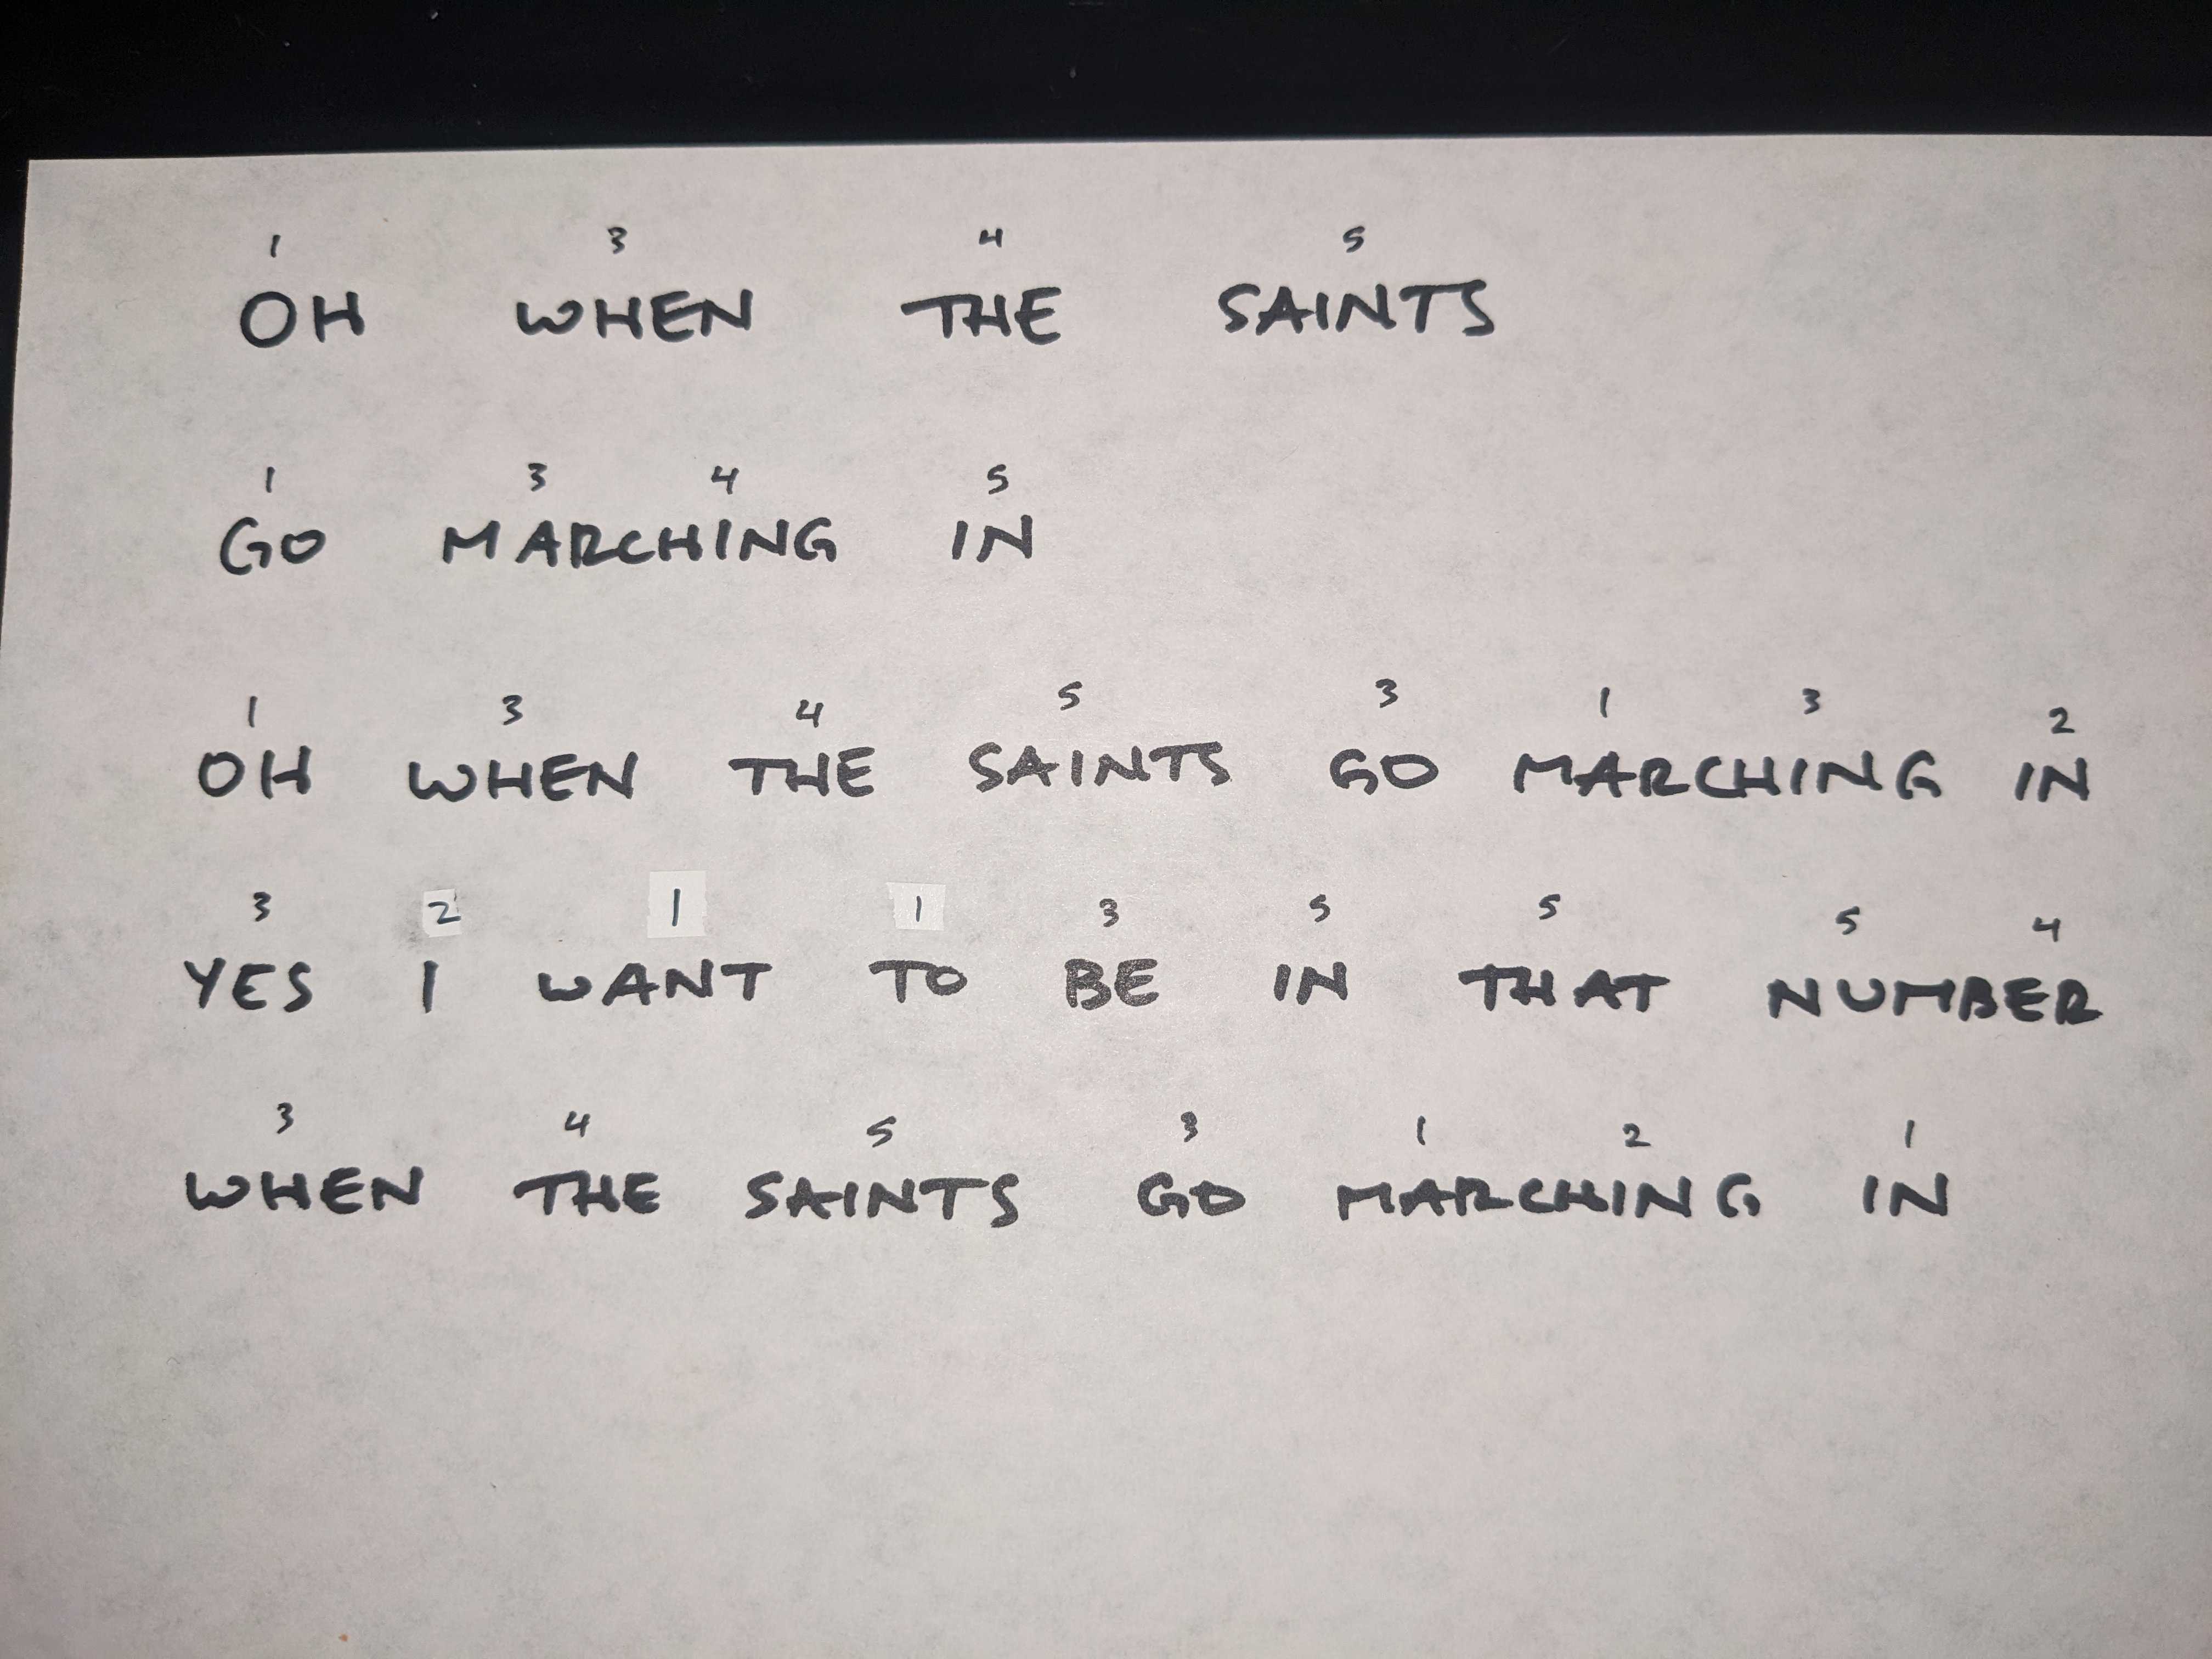 1 3 4 5
OH WHEN THE SAINTS
1 3 4 5
GO MARCHING IN
1 3 4 5 3 1 3 2
OH WHEN THE SAINTS GO MARCHING IN
3 2 1 1 3 5 5 5 4
YES I WANT TO BE IN THAT NUMBER
3 4 5 3 1 2 1
WHEN THE SAINTS GO MARCHING IN